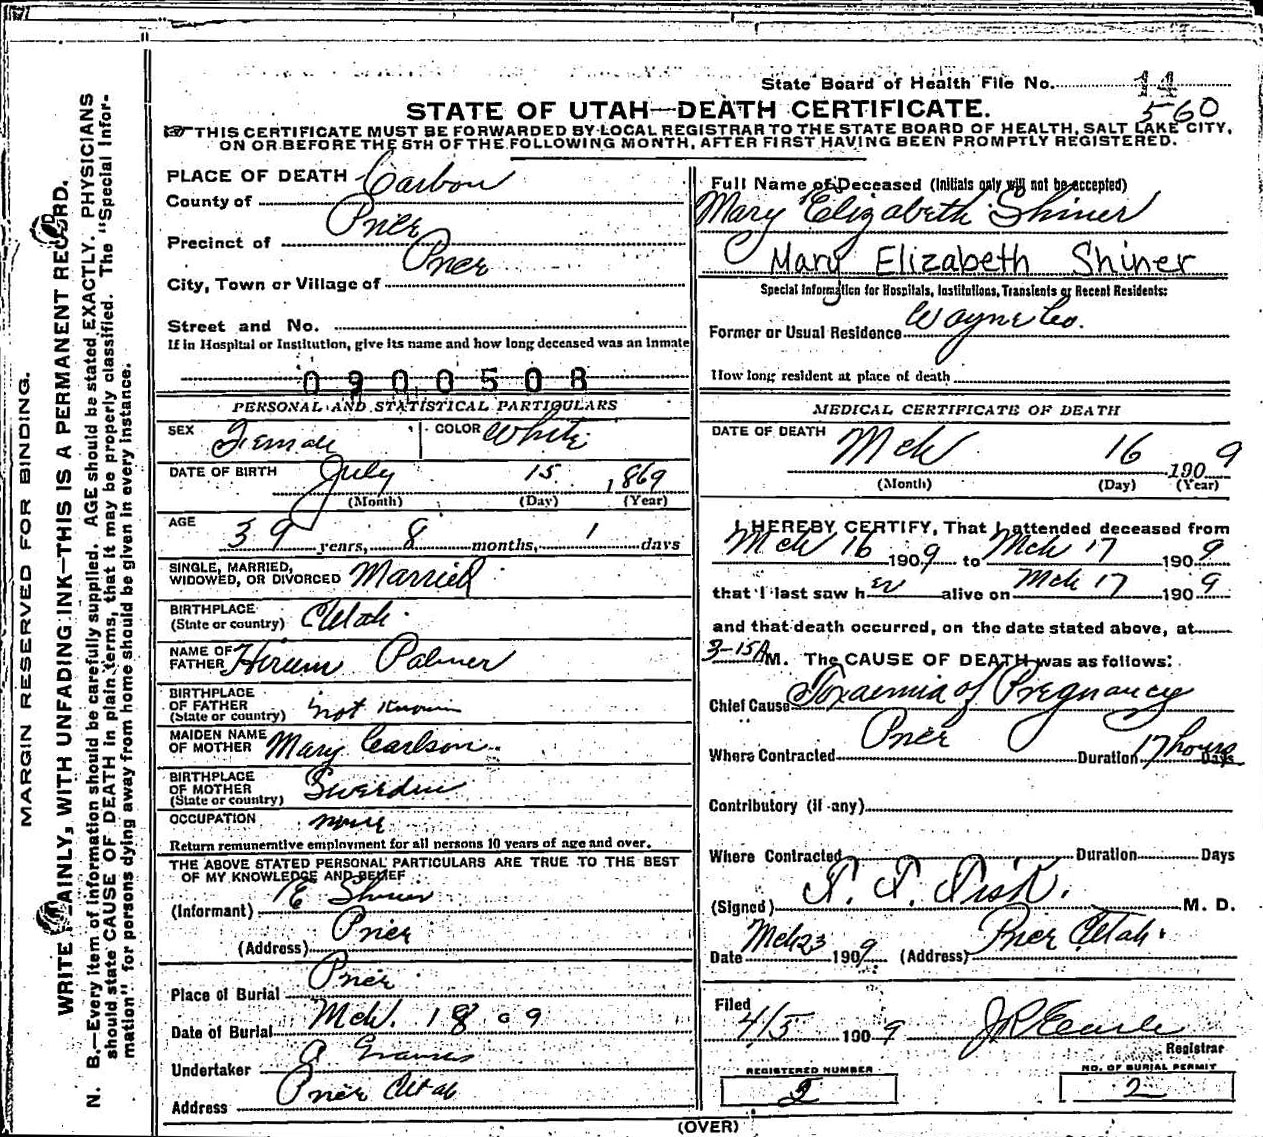 State Board of Health File No. 14
560
STATE OF UTAH—DEATH CERTIFICATE.
THIS CERTIFICATE MUST BE FORWARDED BY LOCAL REGISTRAR TO THE STATE BOARD OF HEALTH, SALT LAKE CITY,
ON OR BEFORE THE 5TH OF THE FOLLOWING MONTH, AFTER FIRST HAVING BEEN PROMPTLY REGISTERED.
MARGIN RESERVED FOR BINDING.
WRITE PLAINLY, WITH UNFADING INK—THIS IS A PERMANENT RECORD.
N. B.—Every item of information should be carefully supplied. AGE should be stated EXACTLY. PHYSICIANS
should state CAUSE OF DEATH in plain terms, that it may be properly classified. The "Special Infor-
mation" for persons dying away from home should be given in every instance.
PLACE OF DEATH
County of Carbon
Precinct of Price
City, Town or Village of Price
Street and No.
If in Hospital or Institution, give its name and how long deceased was an Inmate
0900508
PERSONAL AND STATISTICAL PARTICULARS
SEX Female COLOR White
DATE OF BIRTH July 15 1869
(Month) (Day) (Year)
AGE 39 years, 8 months, 1 days
SINGLE, MARRIED,
WIDOWED, OR DIVORCED Married
BIRTHPLACE
(State or country) Utah
NAME OF
FATHER Hirum Palmer
BIRTHPLACE
OF FATHER
(State or country) not known
MAIDEN NAME
OF MOTHER Mary Carlson
BIRTHPLACE
OF MOTHER
(State or country) Sweeden
OCCUPATION none
Return remunerative employment for all persons 10 years of age and over.
THE ABOVE STATED PERSONAL PARTICULARS ARE TRUE TO THE BEST
OF MY KNOWLEDGE AND BELIEF
(Informant) E Shiner
(Address) Price
Place of Burial Price
Date of Burial Mch. 18 09
Undertaker
Address Price Utah
Full Name of Deceased (Initials only will not be accepted)
Mary Elizabeth Shiner
Mary Elizabeth Shiner
Special Information for Hospitals, Institutions, Transients or Recent Residents:
Former or Usual Residence Wayne Co.
How long resident at place of death
MEDICAL CERTIFICATE OF DEATH
DATE OF DEATH Mch 16 1909
(Month) (Day) (Year)
I HEREBY CERTIFY, That I attended deceased from
Mch 16 1909 to Mch 17 1909
that I last saw her alive on Mch 17 1909
and that death occurred, on the date stated above, at
3-15A M. The CAUSE OF DEATH was as follows:
Chief Cause Toxaemia of Pregnancy
Where Contracted Price Duration 17 hours Days
Contributory (if any)
Where Contracted Duration Days
(Signed) M. D.
Date Mch 23 1909 (Address) Price Utah.
Filed
4/5 1909
Registrar
REGISTERED NUMBER
NO. OF BURIAL PERMIT
2
(OVER)